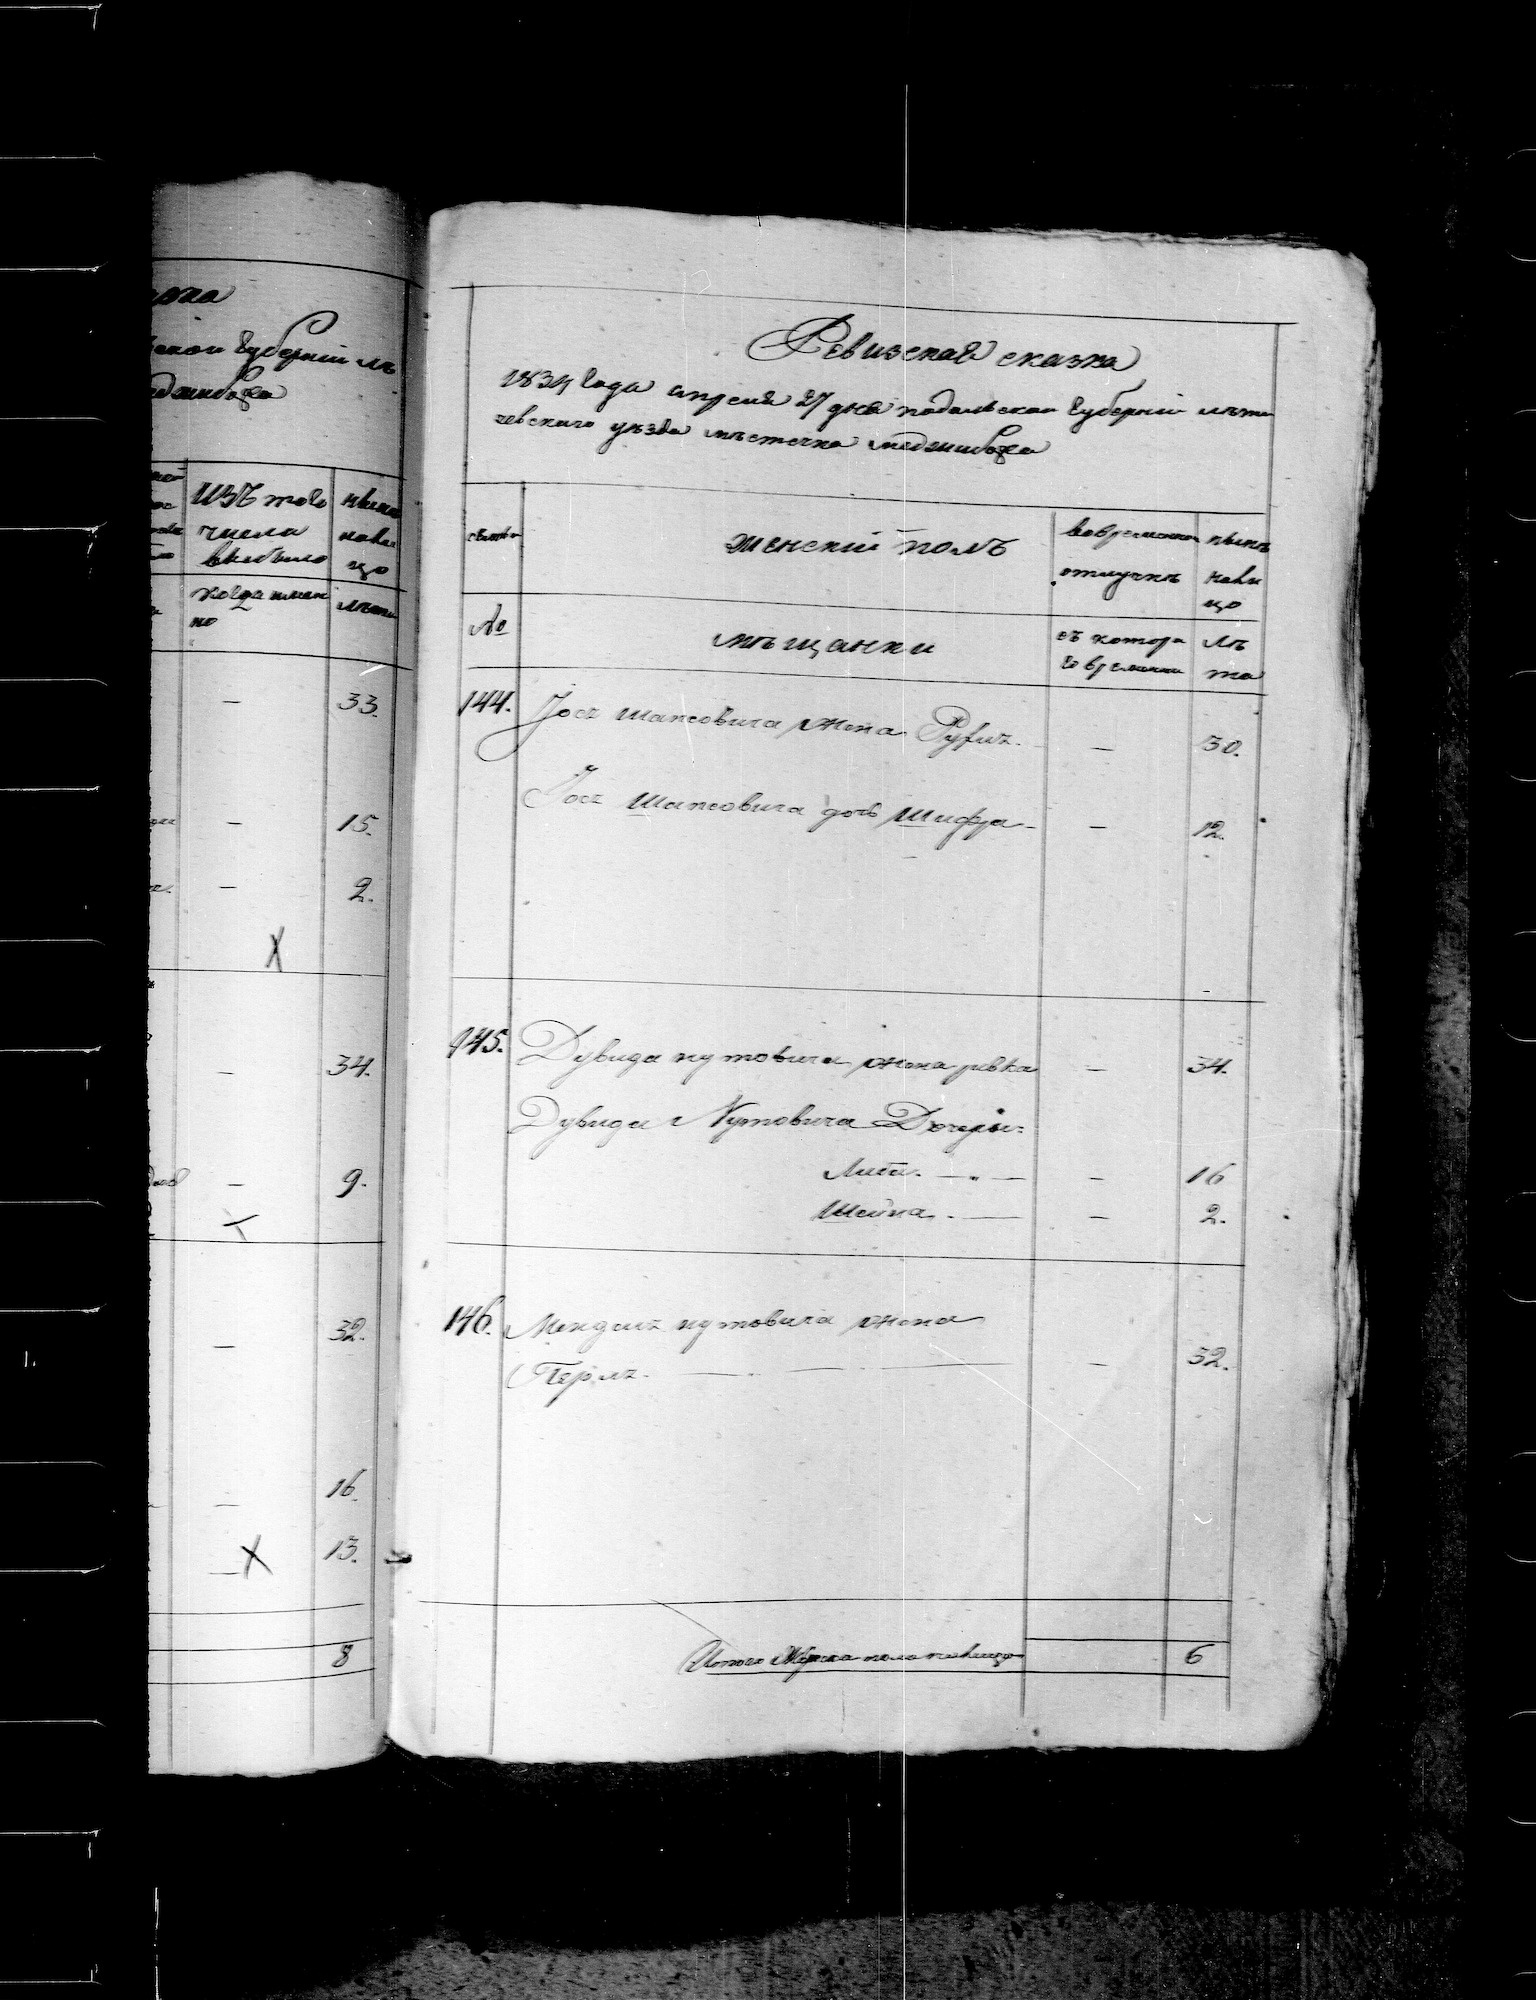 зка
ской Губерніи лѣ
еджибожа
изъ того
числа
выбыло
нынѣ
нали
цо
когда имен
но
лѣта
—
33.
—
15.
—
2.
X
—
34.
—
9.
X
—
32.
—
16.
—
X
13.
8
Ревизская сказка
1834 Года апреля 27 дня подольской Губерніи лѣти
чевскаго уѣзда мѣстечка меджибожа
семьи
женскій полъ
вовременной
отлучкѣ
нынѣ
нали
цо
№
мѣщанки
съ котора
го времяни
лѣ
та
144. Іося шапсовича жена — 30.
Іося Шапсовича дочь Шифра — — 12.
145. Дувида нутовича жена ривка — 34.
Дувида Нутовича Дочери:
— 16
Шейна. — — 2.
146. Мендель нутовича жена
Перля. — — 32.
Итого Женска пола налицо 6